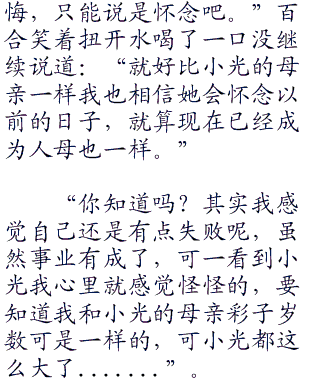 悔，只能说是怀念吧。”百
合笑着扭开水喝了一口没继
续说道：“就好比小光的母
亲一样我也相信她会怀念以
前的日子，就算现在已经成
为人母也一样。”
“你知道吗？其实我感
觉自己还是有点失败呢，虽
然事业有成了，可一看到小
光我心里就感觉怪怪的，要
知道我和小光的母亲彩子岁
数可是一样的，可小光都这
么大了.......”。